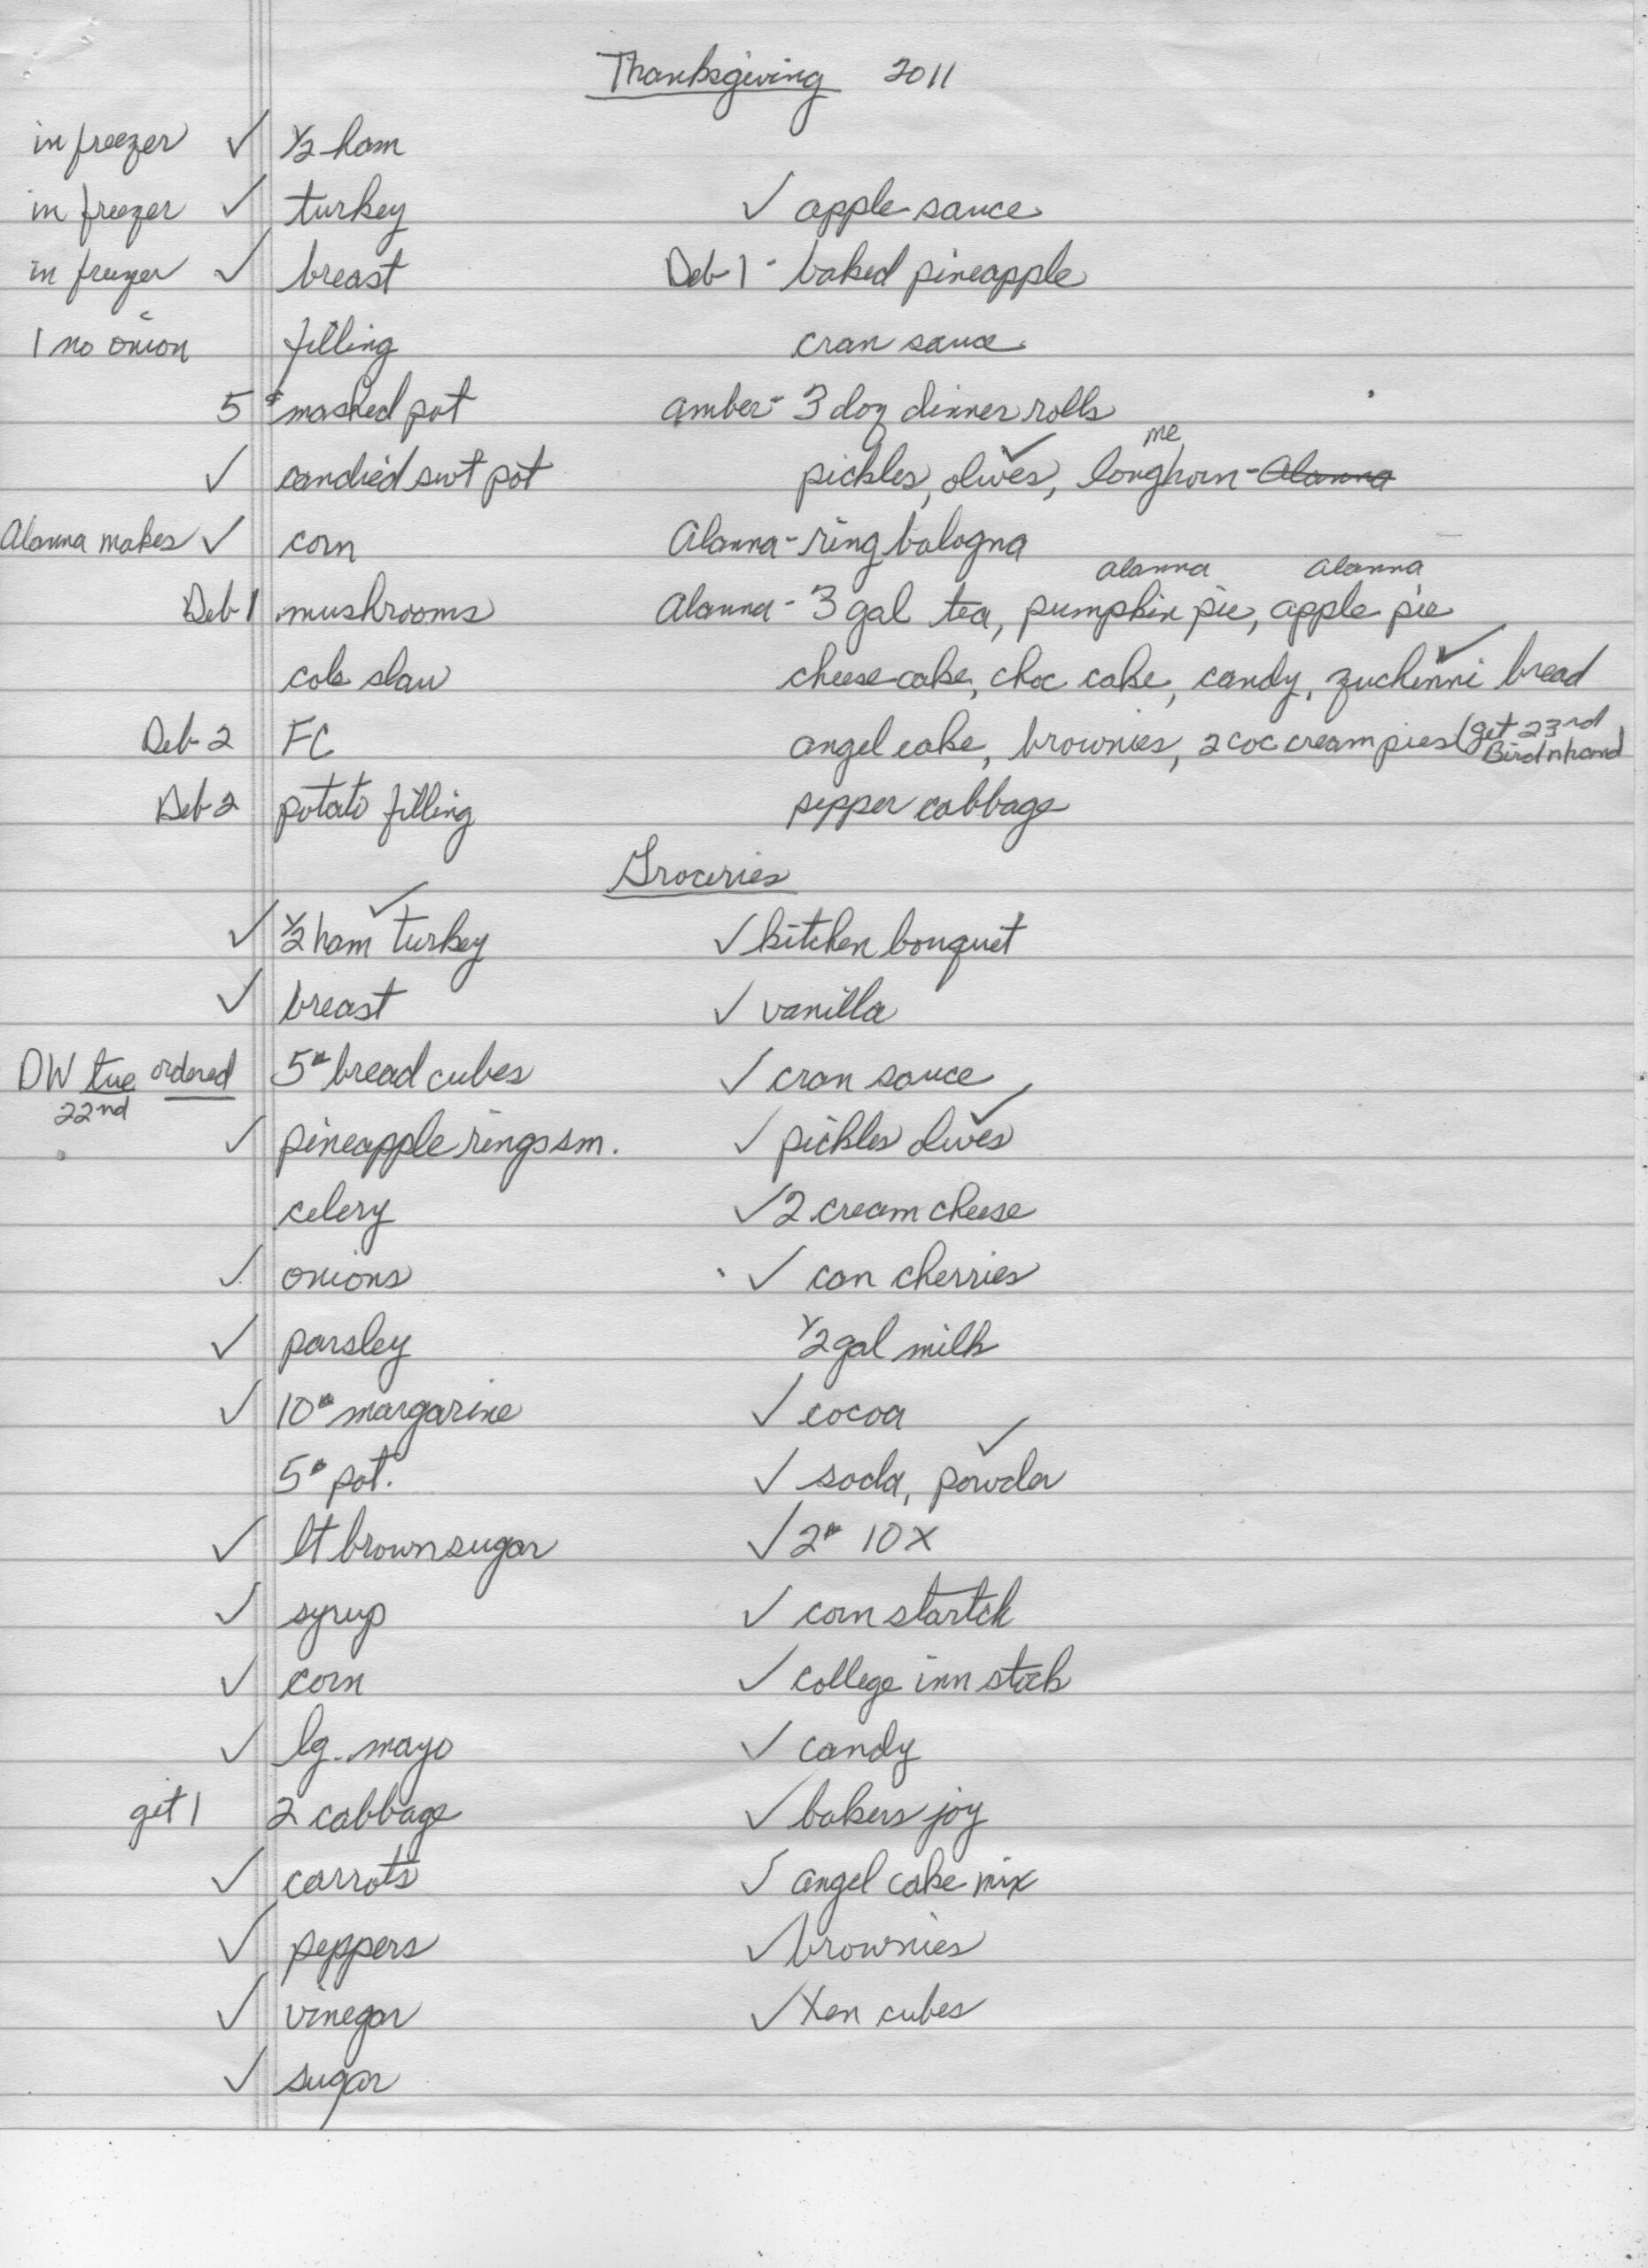 Thanksgiving 2011
in freezer ✓ 1/2 ham
in freezer ✓ turkey ✓ apple sauce
in freezer ✓ breast Deb 1 - baked pineapple
1 no onion filling cran sauce
5# mashed pot amber - 3 doz dinner rolls
me
✓ candied swt pot pickles, olives ✓, longhorn - Alanna
Alanna makes ✓ corn Alanna - ring bologna
alanna alanna
Deb 1 mushrooms Alanna - 3 gal tea, pumpkin pie, apple pie
cole slaw cheese cake, choc cake, candy, zuchinni ✓ bread
Deb 2 FC angel cake, brownies, 2 coc cream pies (get 23rd
Bird n hand
Deb 2 potato filling pepper cabbage
Groceries
✓ 1/2 ham ✓ turkey ✓ kitchen bouquet
✓ breast ✓ vanilla
DW tue ordered 5# bread cubes ✓ cran sauce
22nd
✓ pineapple rings sm. ✓ pickles ✓ olives
celery ✓ 2 cream cheese
✓ onions ✓ can cherries
✓ parsley 1/2 gal milk
✓ 10# margarine ✓ cocoa
5# pot. ✓ soda, ✓ powder
✓ lt brown sugar ✓ 2# 10X
✓ syrup ✓ corn startch
✓ corn ✓ college inn stock
✓ lg. mayo ✓ candy
get 1 2 cabbage ✓ bakers joy
✓ carrots ✓ angel cake mix
✓ peppers ✓ brownies
✓ vinegar ✓ cubes
✓ sugar